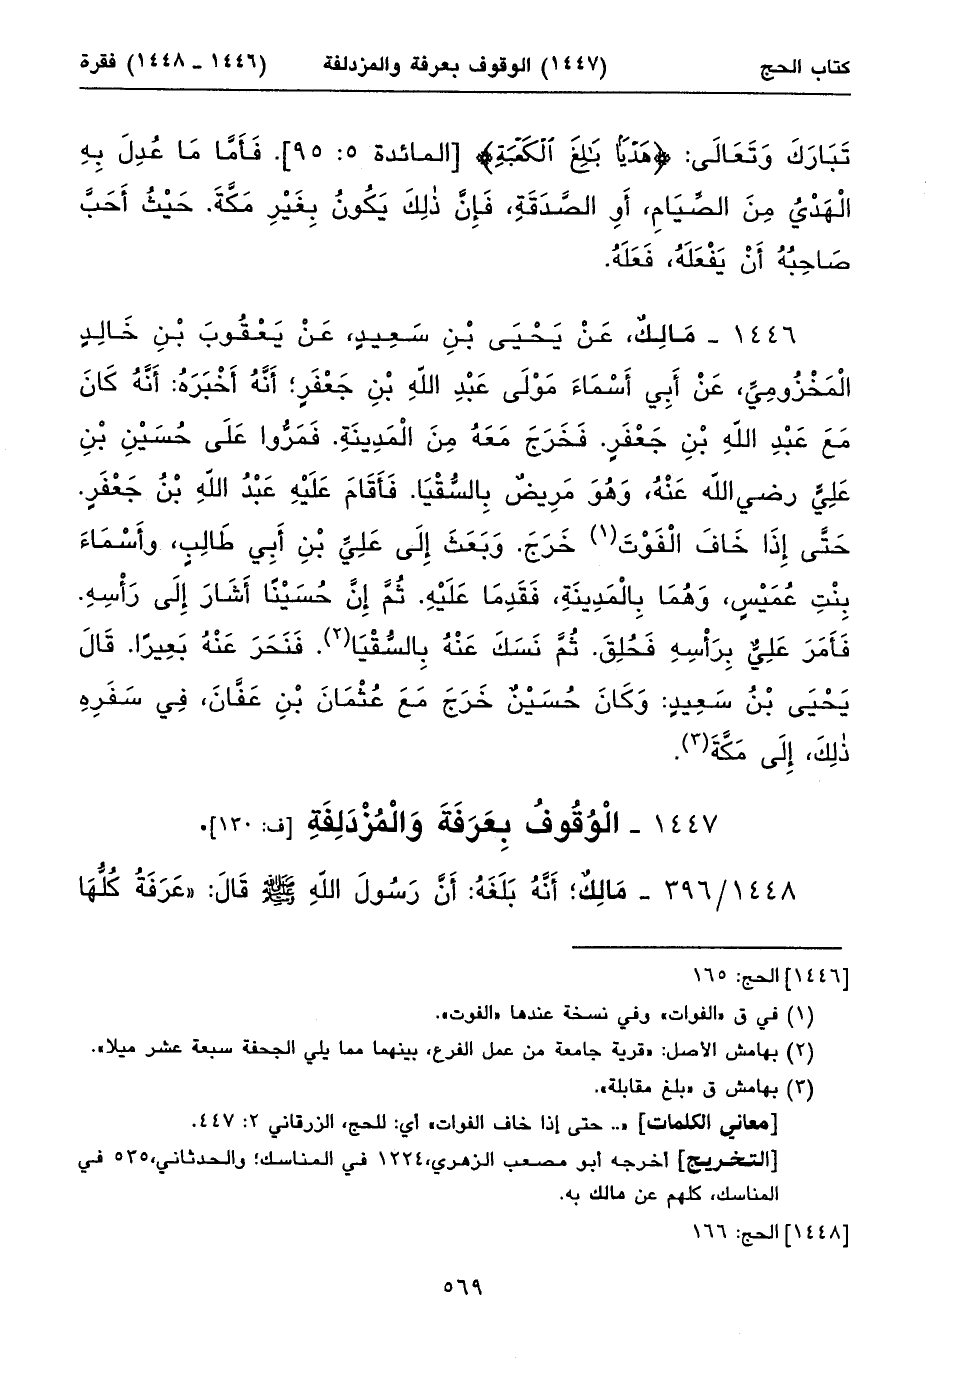 كتاب الحج (١٤٤٧) الوقوف بعرفة والمزدلفة (١٤٤٦ ـ ١٤٤٨) فقرة
تَبَارَكَ وَتَعَالَى: ﴿هَدْيًا بَالِغَ الْكَعْبَةِ﴾ [المائدة ٥: ٩٥]. فَأَمَّا مَا عُدِلَ بِهِ
الْهَدْيُ مِنَ الصِّيَامِ، أَوِ الصَّدَقَةِ، فَإِنَّ ذٰلِكَ يَكُونُ بِغَيْرِ مَكَّةَ. حَيْثُ أَحَبَّ
صَاحِبُهُ أَنْ يَفْعَلَهُ، فَعَلَهُ.
١٤٤٦ ـ مَالِكٌ، عَنْ يَحْيَى بْنِ سَعِيدٍ، عَنْ يَعْقُوبَ بْنِ خَالِدٍ
الْمَخْزُومِيِّ، عَنْ أَبِي أَسْمَاءَ مَوْلَى عَبْدِ اللّٰهِ بْنِ جَعْفَرٍ؛ أَنَّهُ أَخْبَرَهُ: أَنَّهُ كَانَ
مَعَ عَبْدِ اللّٰهِ بْنِ جَعْفَرٍ. فَخَرَجَ مَعَهُ مِنَ الْمَدِينَةِ. فَمَرُّوا عَلَى حُسَيْنِ بْنِ
عَلِيٍّ رضي الله عَنْهُ، وَهُوَ مَرِيضٌ بِالسُّقْيَا. فَأَقَامَ عَلَيْهِ عَبْدُ اللّٰهِ بْنُ جَعْفَرٍ.
حَتَّى إِذَا خَافَ الْفَوْتَ(١) خَرَجَ. وَبَعَثَ إِلَى عَلِيِّ بْنِ أَبِي طَالِبٍ، وأَسْمَاءَ
بِنْتِ عُمَيْسٍ، وَهُمَا بِالْمَدِينَةِ، فَقَدِمَا عَلَيْهِ. ثُمَّ إِنَّ حُسَيْنًا أَشَارَ إِلَى رَأْسِهِ.
فَأَمَرَ عَلِيٌّ بِرَأْسِهِ فَحُلِقَ. ثُمَّ نَسَكَ عَنْهُ بِالسُّقْيَا(٢). فَنَحَرَ عَنْهُ بَعِيرًا. قَالَ
يَحْيَى بْنُ سَعِيدٍ: وَكَانَ حُسَيْنٌ خَرَجَ مَعَ عُثْمَانَ بْنِ عَفَّانَ، فِي سَفَرِهِ
ذٰلِكَ، إِلَى مَكَّةَ(٣).
١٤٤٧ ـ الْوُقُوفُ بِعَرَفَةَ وَالْمُزْدَلِفَةِ [ف: ١٣٠].
٣٩٦/١٤٤٨ ـ مَالِكٌ؛ أَنَّهُ بَلَغَهُ: أَنَّ رَسُولَ اللّٰهِ ﷺ قَالَ: «عَرَفَةُ كُلُّهَا
[١٤٤٦] الحج: ١٦٥
(١) في ق «الفوات» وفي نسخة عندها «الفوت».
(٢) بهامش الأصل: «قرية جامعة من عمل الفرع، بينهما مما يلي الجحفة سبعة عشر ميلا».
(٣) بهامش ق «بلغ مقابلة».
[معاني الكلمات] «.. حتى إذا خاف الفوات» أي: للحج، الزرقاني ٢: ٤٤٧.
[التخريج] أخرجه أبو مصعب الزهري، ١٢٢٤ في المناسك؛ والحدثاني، ٥٣٥ في
المناسك، كلهم عن مالك به.
[١٤٤٨] الحج: ١٦٦
٥٦٩